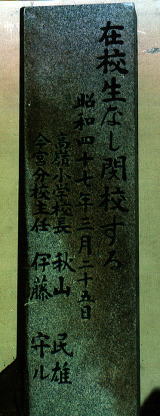 在校生なし閉校する
昭和四十七年三月二十五日
高嶺小学校長 秋山 民雄
今宮分校主任 伊藤 守ル